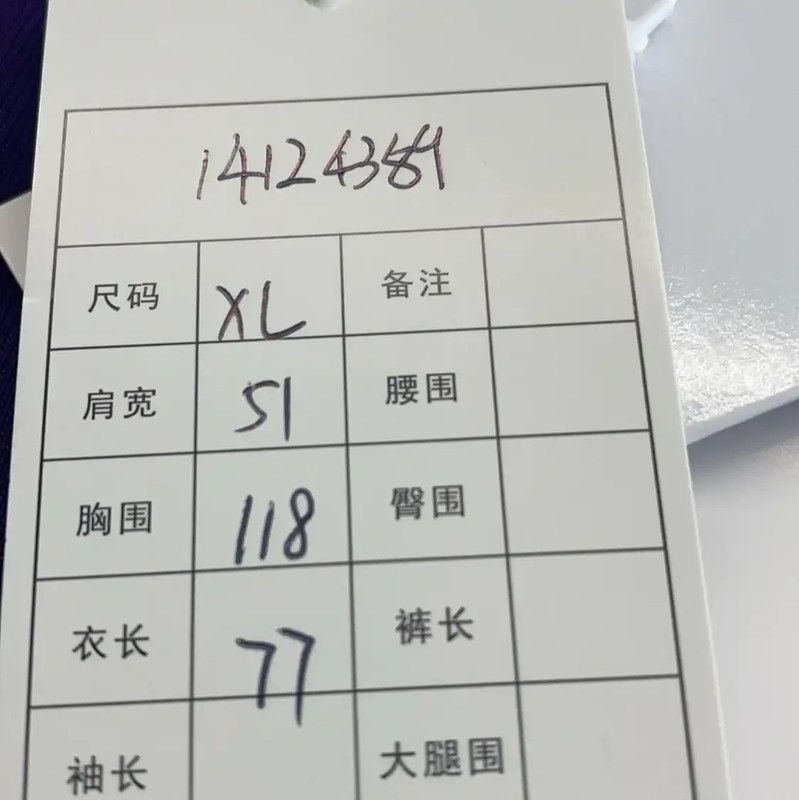 14124389
尺码 XL 备注
肩宽 51 腰围
胸围 118 臀围
衣长 77 裤长
袖长 大腿围